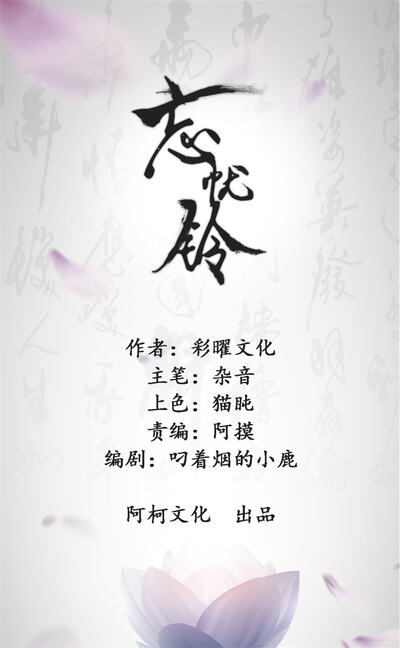 忘忧铃
作者：彩曜文化
主笔：杂音
上色：猫盹
责编：阿摸
编剧：叼着烟的小鹿
阿柯文化 出品